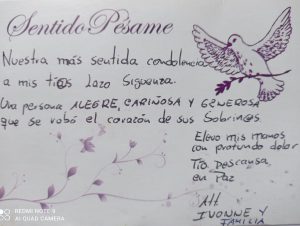 Sentido Pésame
Nuestra más sentida condolencia
a mis ti@s Lazo Siguenza.
Una persona ALEGRE, CARIÑOSA Y GENEROSA
que se robó el corazón de sus Sobrin@s.
Elevo mis manos
con profundo dolor
Tío Descansa
en Paz
Att
IVONNE Y
FAMILIA
REDMI NOTE 9
AI QUAD CAMERA